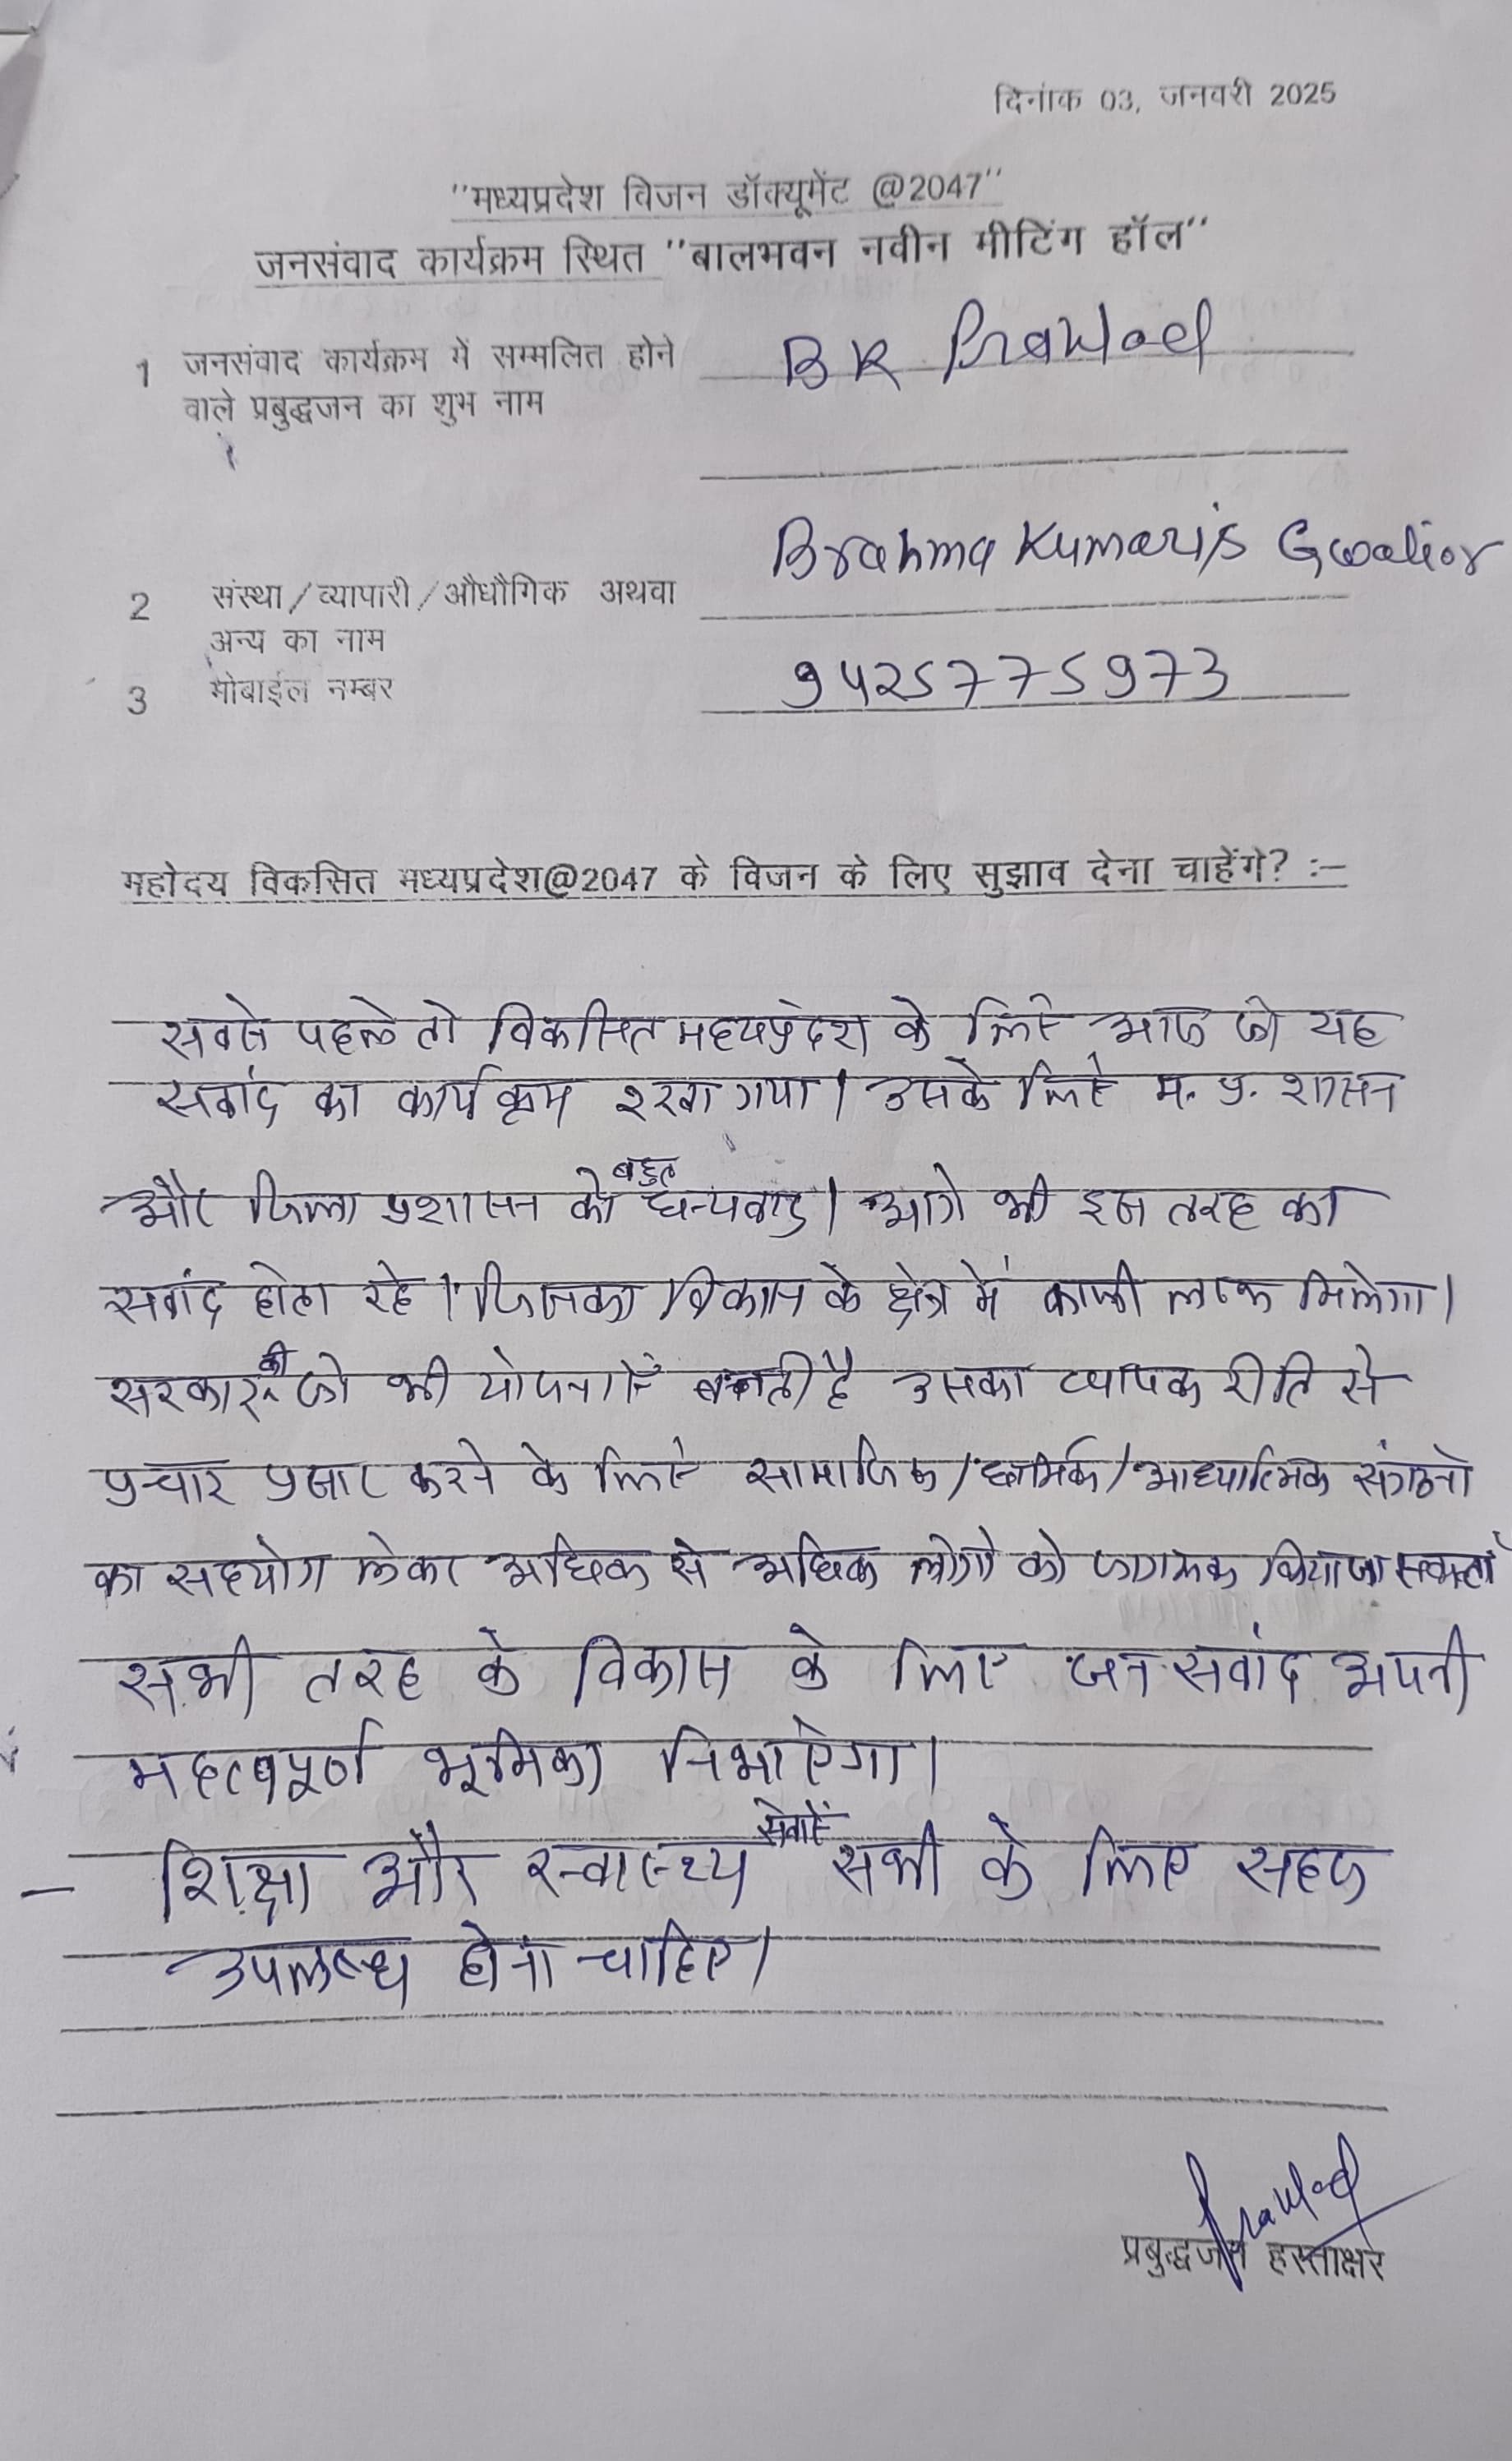 दिनांक 03, जनवरी 2025
"मध्यप्रदेश विजन डॉक्यूमेंट @2047"
जनसंवाद कार्यक्रम स्थित "बालभवन नवीन मीटिंग हॉल"
1 जनसंवाद कार्यक्रम में सम्मलित होने B K Prahlad
वाले प्रबुद्धजन का शुभ नाम
Brahma Kumaris Gwalior
2 संस्था/व्यापारी/औधौगिक अथवा
अन्य का नाम
3 मोबाईल नम्बर 9425775973
महोदय विकसित मध्यप्रदेश@2047 के विजन के लिए सुझाव देना चाहेंगे? :–
सबसे पहले तो विकसित मध्यप्रदेश के लिये आज जो यह
सवांद का कार्यक्रम रखा गया। उसके लिए म. प्र. शासन
और जिला प्रशासन को बहुत धन्यवाद। आगे भी इस तरह का
सवांद होता रहे। जिसका विकास के क्षेत्र में काफी लाभ मिलेगा।
सरकार की जो भी योजनाऐं बनती है उसका व्यापक रीति से
प्रचार प्रसार करने के लिए सामाजिक/धार्मिक/आध्यात्मिक संगठनो
का सहयोग लेकर अधिक से अधिक लोगो को जागरूक किया जा सकता
सभी तरह के विकास के लिए जन सवांद अपनी
महत्वपूर्ण भूमिका निभाऐगा।
– शिक्षा और स्वास्थ्य सेवाऐं सभी के लिए सहज
उपलब्ध होना चाहिए।
Prahlad
प्रबुद्धजन हस्ताक्षर